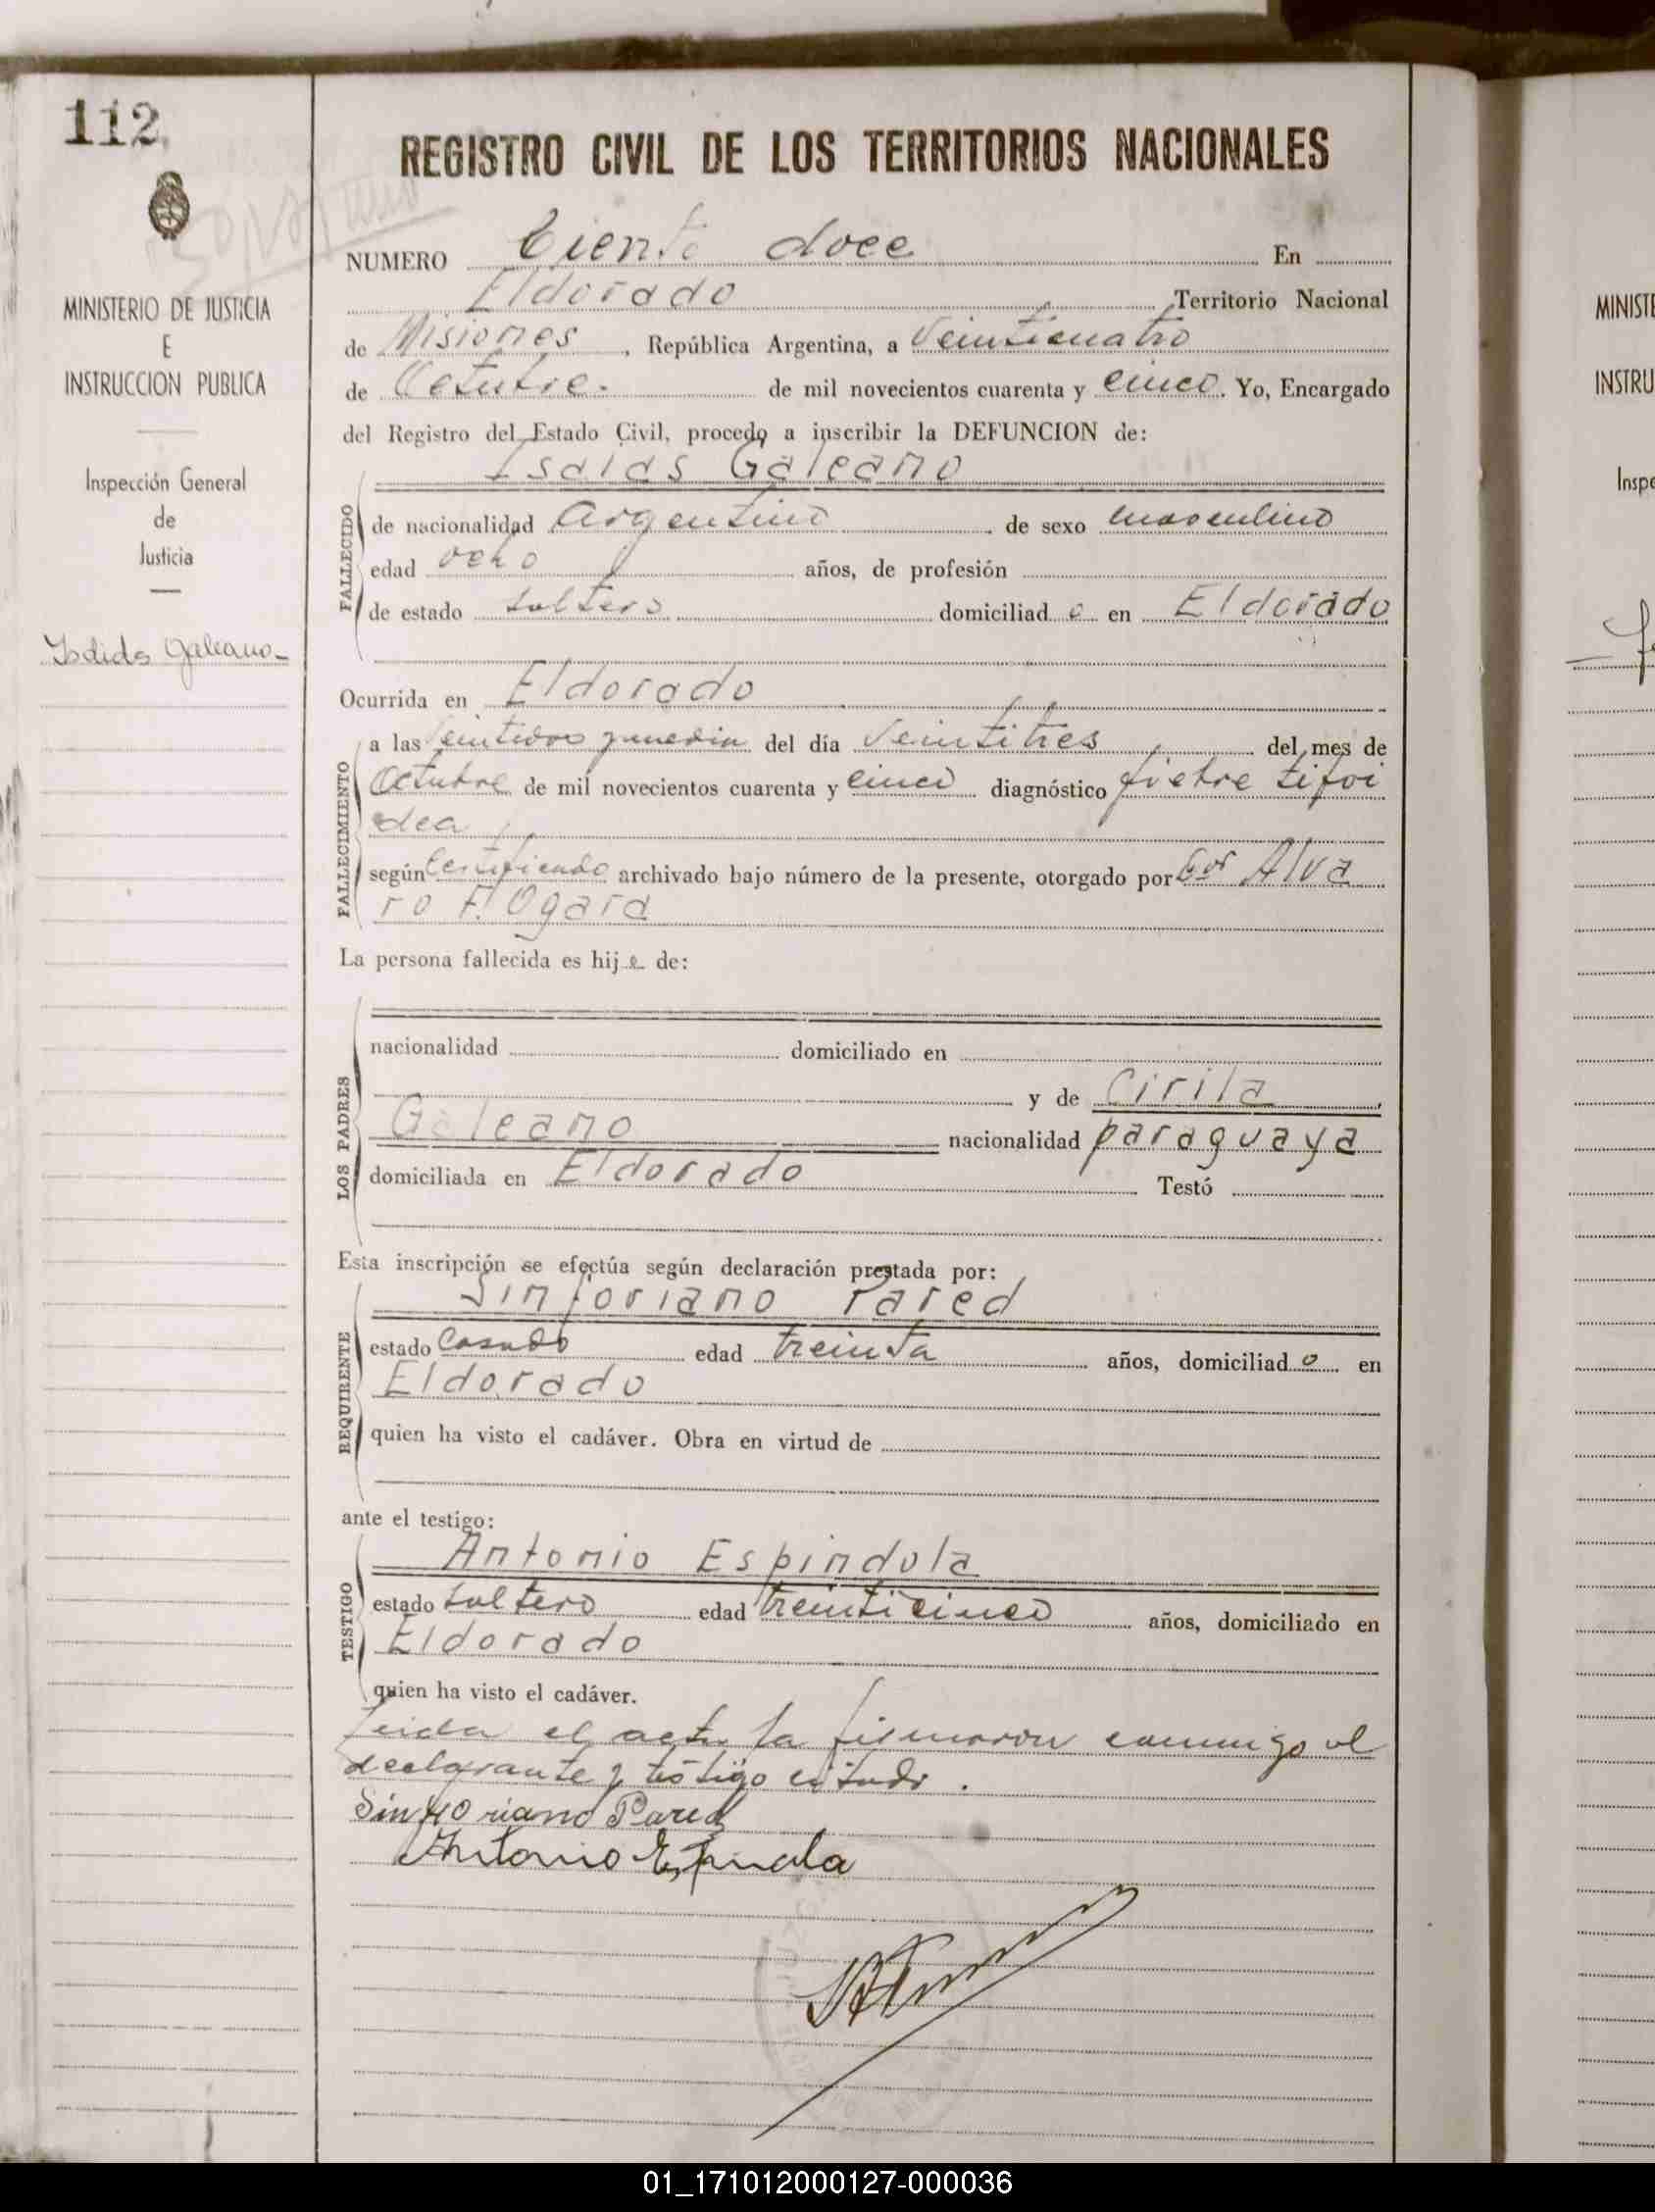 112
REGISTRO CIVIL DE LOS TERRITORIOS NACIONALES
NUMERO Ciento doce En
Eldorado Territorio Nacional
de Misiones, República Argentina, a Veinticuatro
de Octubre. de mil novecientos cuarenta y cinco. Yo, Encargado
del Registro del Estado Civil, procedo a inscribir la DEFUNCION de:
Isaias Galeano
FALLECIDO
de nacionalidad Argentino de sexo masculino
edad ocho años, de profesión
de estado soltero domiciliado en Eldorado
Ocurrida en Eldorado
FALLECIMIENTO
a las Veintidos y media del día Veintitres del mes de
Octubre de mil novecientos cuarenta y cinco diagnóstico fiebre tifoi
dea
según Certificado archivado bajo número de la presente, otorgado por Alva
ro F. Ogara
La persona fallecida es hij de:
LOS PADRES
nacionalidad domiciliado en
y de Cirila
Galeano nacionalidad paraguaya
domiciliada en Eldorado Testó
Esta inscripción se efectúa según declaración prestada por:
Sinforiano Pared
REQUIRENTE
estado Casado edad treinta años, domiciliado en
Eldorado
quien ha visto el cadáver. Obra en virtud de
ante el testigo:
Antonio Espindola
TESTIGO
estado soltero edad treinticinco años, domiciliado en
Eldorado
quien ha visto el cadáver.
Leida el acta la firmaron conmigo el
declarante y testigo citado.
Sinforiano Pared
Antonio
MINISTERIO DE JUSTICIA
E
INSTRUCCION PUBLICA
Inspección General
de
Justicia
Isaias Galeano-
MINISTE
INSTRU
Inspe
01_171012000127-000036